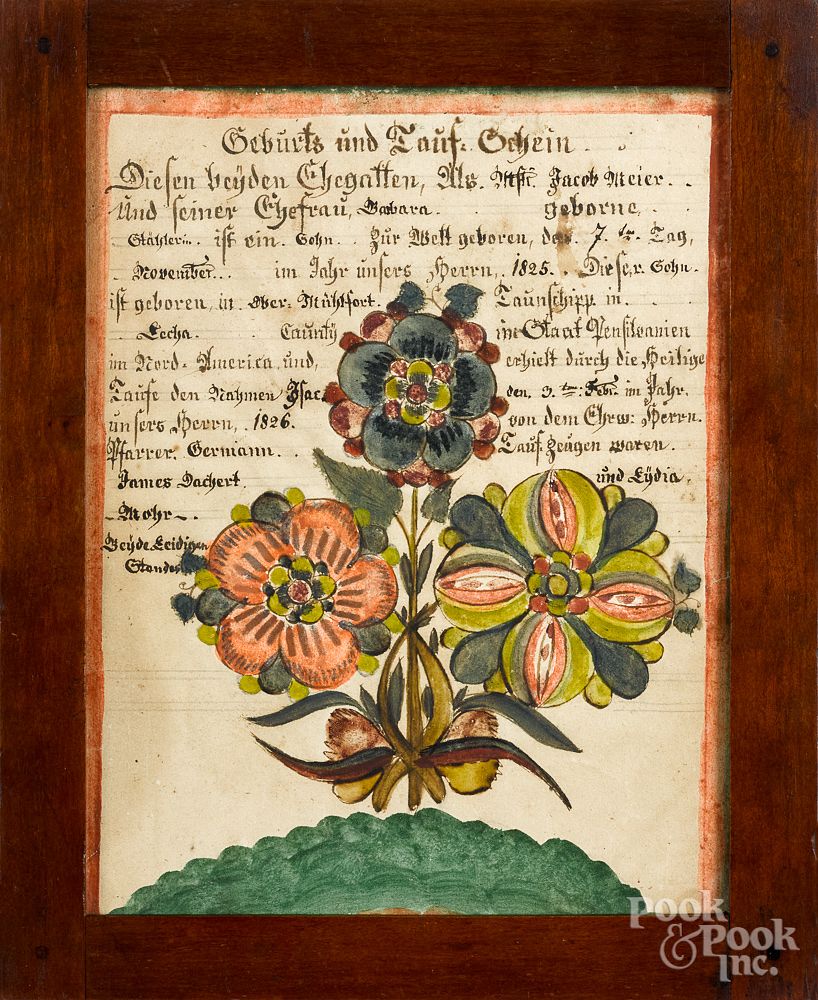 Geburts und Tauf: Schein.
Diesen beyden Ehegatten, Als. Mstr. Jacob Meier.
Und seiner Ehefrau, Barbara. geborne,
Stähler.. ist ein. Sohn. Zur Welt geboren, den. 7. te. Tag,
November.. im Jahr unsers Herrn, 1825. Dieser. Sohn.
ist geboren, in Ober: Mühlfort. Taunschipp in
Lecha. Caunty im Staat Pensilvanien
im Nord: America, und, erhielt durch die Heilige
Taufe den Nahmen Isac. den. 3. te: Febr. im Jahr.
unsers Herrn, 1826. von dem Ehrw: Herrn.
Pfarrer. Germann. Tauf: Zeugen waren.
James Dachert. und Lydia.
Mohr.
Beyde Leidigen
Standes
POOK
& POOK
INC.